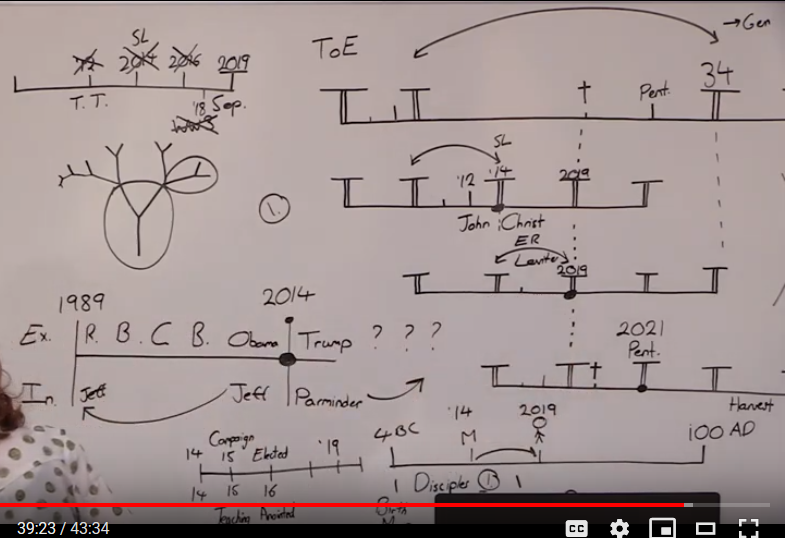 →Gen
ToE
SL
2014 2016 2019
T.T. '18 Sep.
34
† Pent.
SL
'12 '14 2019
John Christ
1.
ER
Levites
2019
1989 2014
Ex. R. B. C B. Obama Trump ? ? ?
In. Jeff Jeff Parminder
2021
Pent.
†
Harvest
14 Campaign
15 Elected '19
14 15 16
Teaching Anointed
4BC '14 2019 100 AD
M
1 Disciples 1 1
Birth
39:23 / 43:34
CC